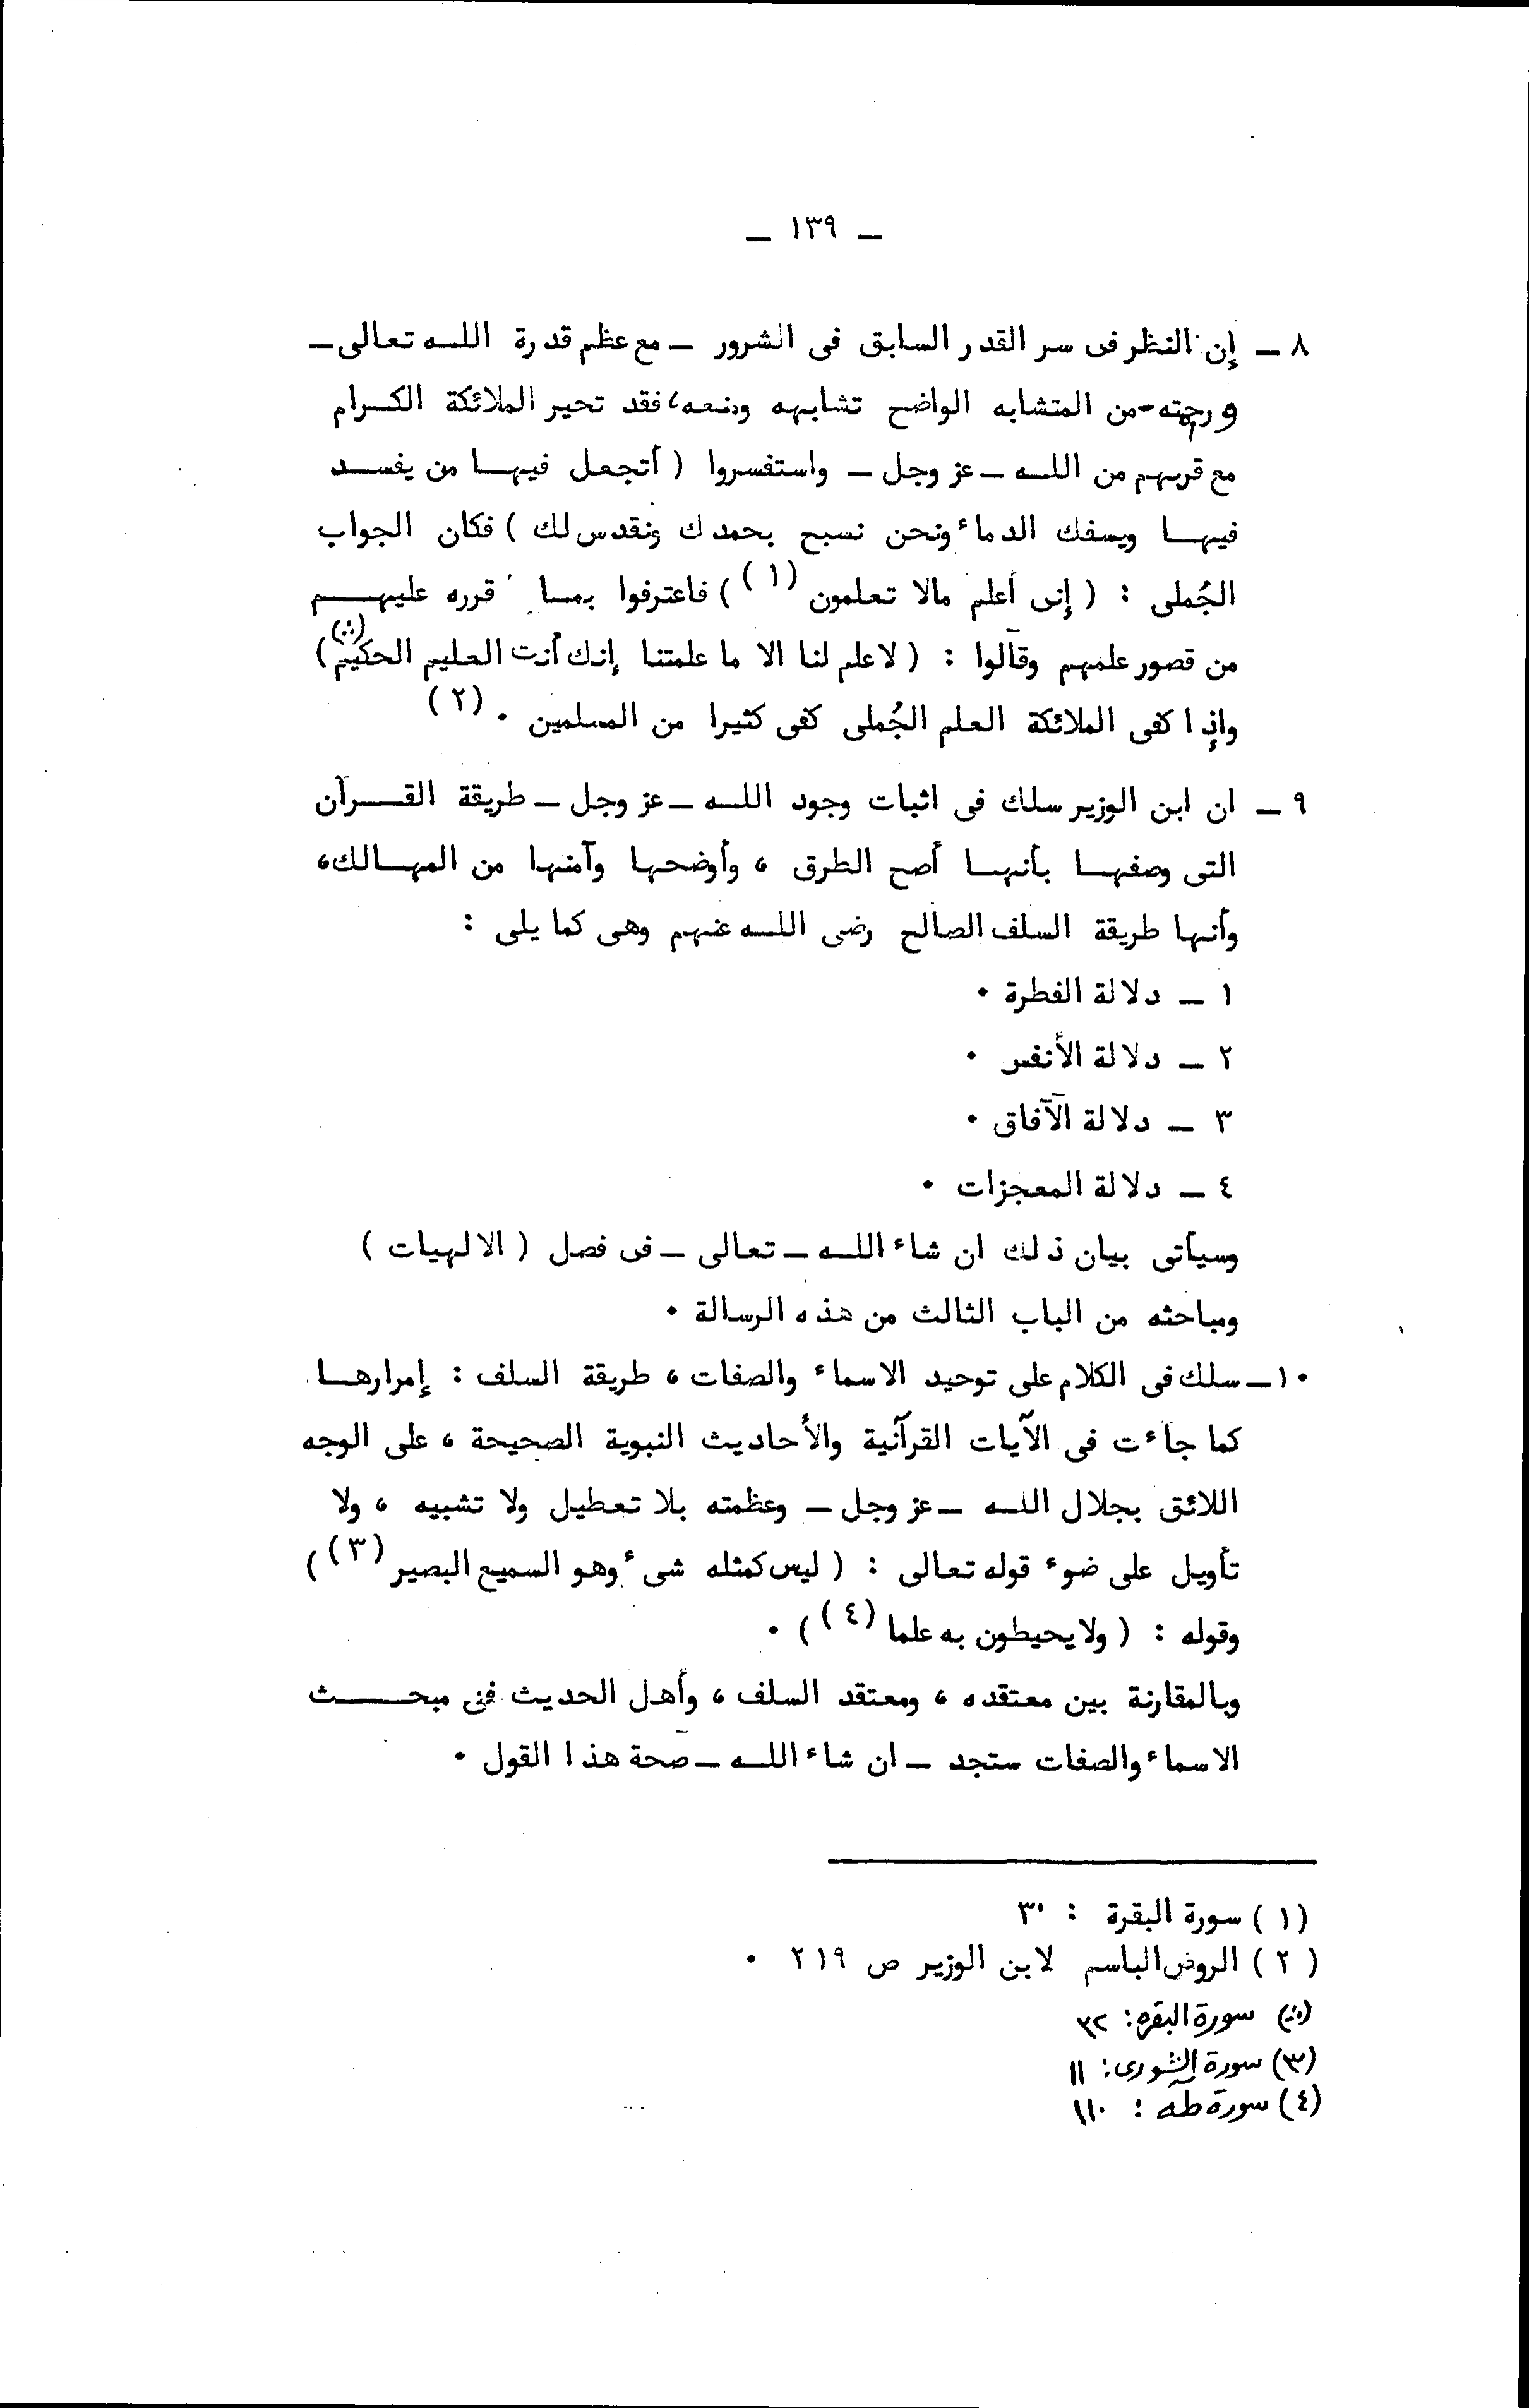 ــ ١٣٩ ــ
٨ ــ إن النظر فى سر القدر السابق فى الشرور ــ مع عظم قدرة اللــه تعالى ــ
ورحمته ــ من المتشابه الواضح تشابهه ومنعه، فقد تحير الملائكة الكــرام
مع قربهم من اللــه ــ عز وجل ــ واستفسروا ( أتجعل فيهــا من يفســد
فيهــا ويسفك الدماء ونحن نسبح بحمدك ونقدس لك ) فكان الجواب
الجُملى : ( إنى أعلم مالا تعلمون (١) ) فاعترفوا بمــا قرره عليهــم
من قصور علمهم وقالوا : ( لا علم لنا الا ما علمتنا إنك أنت العليم الحكيم (\*) )
وإذا كفى الملائكة العلم الجُملى كفى كثيرا من المسلمين . (٢)
٩ ــ ان ابن الوزير سلك فى اثبات وجود اللــه ــ عز وجل ــ طريقة القــرآن
التى وصفهــا بأنهــا أصح الطرق ، وأوضحها وآمنها من المهــالك،
وأنها طريقة السلف الصالح رضى اللــه عنهم وهى كما يلى :
١ ــ دلالة الفطرة .
٢ ــ دلالة الأنفس .
٣ ــ دلالة الآفاق .
٤ ــ دلالة المعجزات .
وسيأتى بيان ذلك ان شاء اللــه ــ تعالى ــ فى فصل ( الالهيات )
ومباحثه من الباب الثالث من هذه الرسالة .
١٠ ــ سلك فى الكلام على توحيد الاسماء والصفات ، طريقة السلف : إمرارهــا
كما جاءت فى الآيات القرآنية والأحاديث النبوية الصحيحة ، على الوجه
اللائق بجلال اللــه ــ عز وجل ــ وعظمته بلا تعطيل ولا تشبيه ، ولا
تأويل على ضوء قوله تعالى : ( ليس كمثله شىء وهو السميع البصير (٣) )
وقوله : ( ولا يحيطون به علما (٤) ) .
وبالمقارنة بين معتقده ، ومعتقد السلف ، وأهل الحديث فى مبحــث
الاسماء والصفات ستجد ــ ان شاء اللــه ــ صحة هذا القول .
(١) سورة البقرة : ٣٠
(٢) الروض الباسم لابن الوزير ص ٢١٩ .
(\*) سورة البقره : ٣٢
(٣) سورة الشورى : ١١
(٤) سورة طه : ١١٠